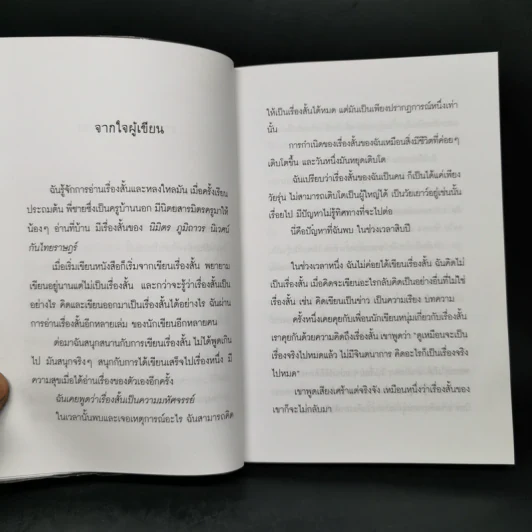 จากใจผู้เขียน
ฉันรู้จักการอ่านเรื่องสั้นและหลงใหลมัน เมื่อครั้งเรียน
ประถมต้น พี่ชายซึ่งเป็นครูบ้านนอก มีนิตยสารมิตรครูมาให้
น้องๆ อ่านที่บ้าน มีเรื่องสั้นของ นิมิตร ภูมิถาวร นิเวศน์
กันไทยราษฎร์
เมื่อเริ่มเขียนหนังสือก็เริ่มจากเขียนเรื่องสั้น พยายาม
เขียนอยู่นานแต่ไม่เป็นเรื่องสั้น และกว่าจะรู้ว่าเรื่องสั้นเป็น
อย่างไร คิดและเขียนออกมาเป็นเรื่องสั้นได้อย่างไร ฉันผ่าน
การอ่านเรื่องสั้นอีกหลายเล่ม ของนักเขียนอีกหลายคน
ต่อมาฉันสนุกสนานกับการเขียนเรื่องสั้น ไม่ได้พูดเกิน
ไป มันสนุกจริงๆ สนุกกับการได้เขียนเสร็จไปเรื่องหนึ่ง มี
ความสุขเมื่อได้อ่านเรื่องของตัวเองอีกครั้ง
ฉันเคยพูดว่าเรื่องสั้นเป็นความมหัศจรรย์
ในเวลานั้นพบและเจอเหตุการณ์อะไร ฉันสามารถคิด
ให้เป็นเรื่องสั้นได้หมด แต่มันเป็นเพียงปรากฏการณ์หนึ่งเท่า
นั้น
การกำเนิดของเรื่องสั้นของฉันเหมือนสิ่งมีชีวิตที่ค่อยๆ
เติบโตขึ้น และวันหนึ่งมันหยุดเติบโต
ฉันเปรียบว่าเรื่องสั้นของฉันเป็นคน ก็เป็นได้แค่เพียง
วัยรุ่น ไม่สามารถเติบโตเป็นผู้ใหญ่ได้ เป็นวัยเยาว์อยู่เช่นนั้น
เรื่อยไป มีปัญหาไม่รู้ทิศทางที่จะไปต่อ
นี่คือปัญหาที่ฉันพบ ในช่วงเวลาสิบปี
ในช่วงเวลาหนึ่ง ฉันไม่ค่อยได้เขียนเรื่องสั้น ฉันคิดไม่
เป็นเรื่องสั้น เมื่อคิดจะเขียนอะไรกลับคิดเป็นอย่างอื่นที่ไม่ใช่
เรื่องสั้น เช่น คิดเขียนเป็นข่าว เป็นความเรียง บทความ
ครั้งหนึ่งเคยคุยกับเพื่อนนักเขียนหนุ่มเกี่ยวกับเรื่องสั้น
เราคุยกันด้วยความคิดถึงเรื่องสั้น เขาพูดว่า "ดูเหมือนจะเป็น
เรื่องจริงไปหมดแล้ว ไม่มีจินตนาการ คิดอะไรก็เป็นเรื่องจริง
ไปหมด"
เขาพูดเสียงเศร้าแต่จริงจัง เหมือนหนึ่งว่าเรื่องสั้นของ
เขาก็จะไม่กลับมา